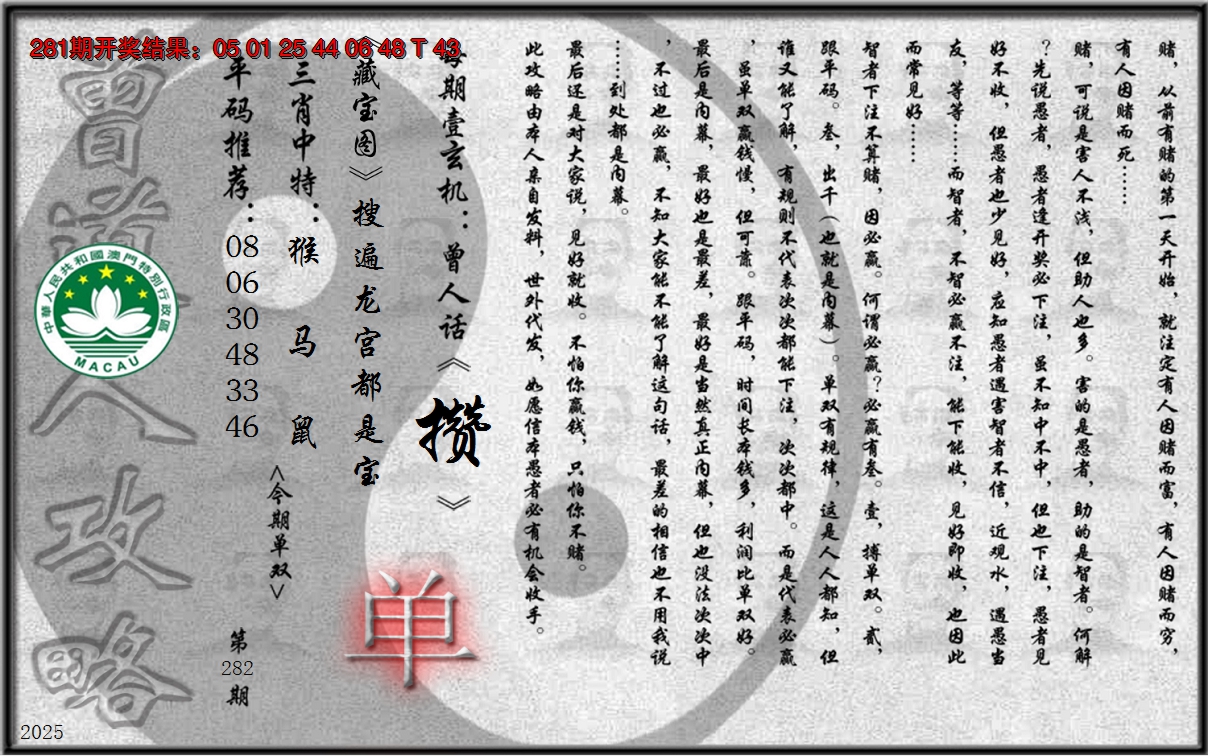 281期开奖结果：05 01 25 44 06 48 T 43
赌，从前有赌的第一天开始，就注定有人因赌而富，有人因赌而穷，
有人因赌而死……
赌，可说是害人不浅，但助人也多。害的是愚者，助的是智者。何解
？先说愚者，愚者逢开奖必下注，虽不知中不中，但也下注，愚者见
好不收，但愚者也少见好，应知愚者遇害智者不信，近观水，遇愚当
友，等等……而智者，不智必赢不注，能下能收，见好即收，也因此
而常见好……
智者下注不算赌，因必赢。何谓必赢？必赢有叁。壹，搏单双。贰，
跟平码。叁，出千（也就是内幕）。单双有规律，这是人人都知，但
谁又能了解，有规则不代表次次都能下注，次次都中。而是代表必赢
，虽单双赢钱慢，但可靠。跟平码，时间长本钱多，利润比单双好。
最后是内幕，最好也是最差，最好是当然真正内幕，但也没法次次中
，不过也必赢，不知大家能不能了解这句话，最差的相信也不用我说
……到处都是内幕。
最后还是对大家说，见好就收。不怕你赢钱，只怕你不赌。
此攻略由本人亲自发料，世外代发，如愿信本愚者必有机会收手。
每期壹玄机：曾人话《攒》
《藏宝图》搜遍龙宫都是宝
单
三肖中特：猴 马 鼠
<今期单双>
平码推荐：08 06 30 48 33 46
第282期
曾道人攻略
中華人民共和國澳門特別行政區
MACAU
2025